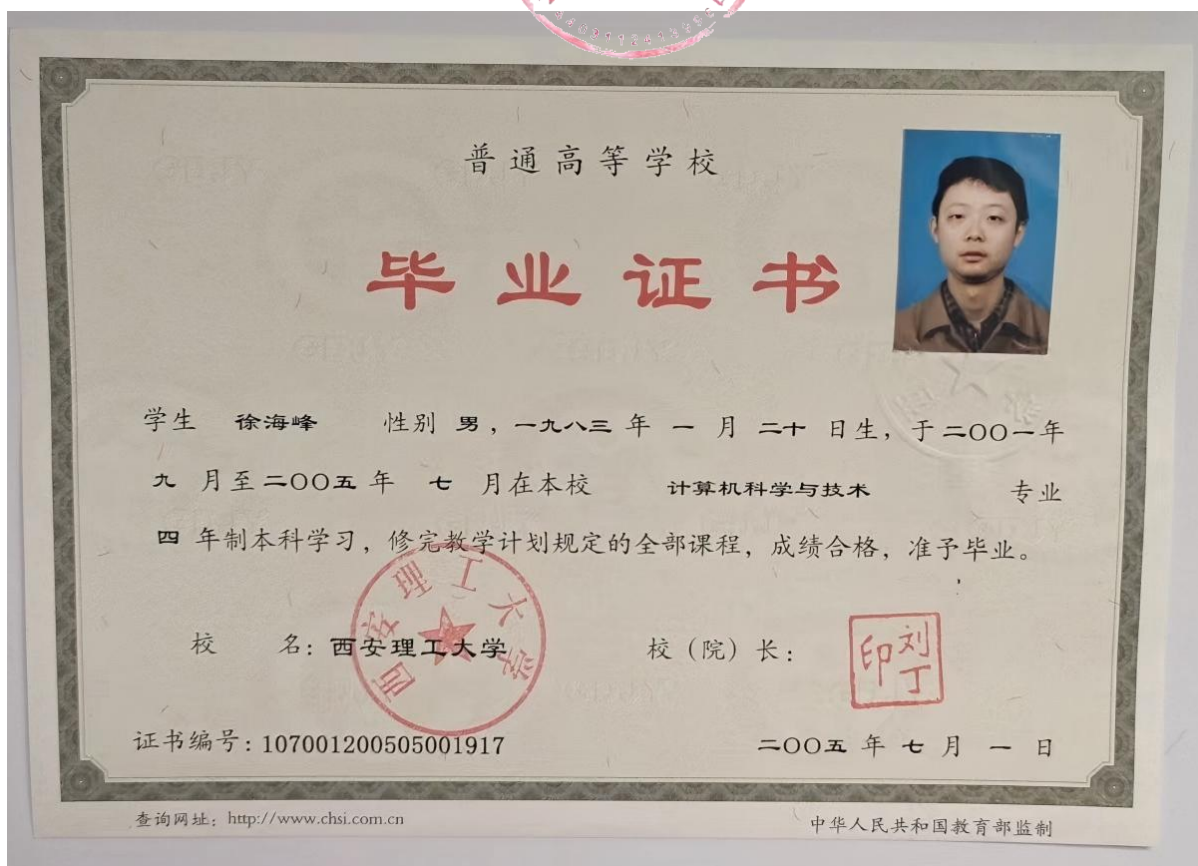 普通高等学校
毕业证书
学生 徐海峰 性别 男，一九八三 年 一 月 二十 日生，于 二〇〇一 年
九 月至 二〇〇五 年 七 月在本校 计算机科学与技术 专业
四 年制本科学习，修完教学计划规定的全部课程，成绩合格，准予毕业。
西安理工大学
校 名：西安理工大学 校（院）长：
刘丁印
证书编号：107001200505001917 二〇〇五 年 七 月 一 日
查询网址：http://www.chsi.com.cn 中华人民共和国教育部监制